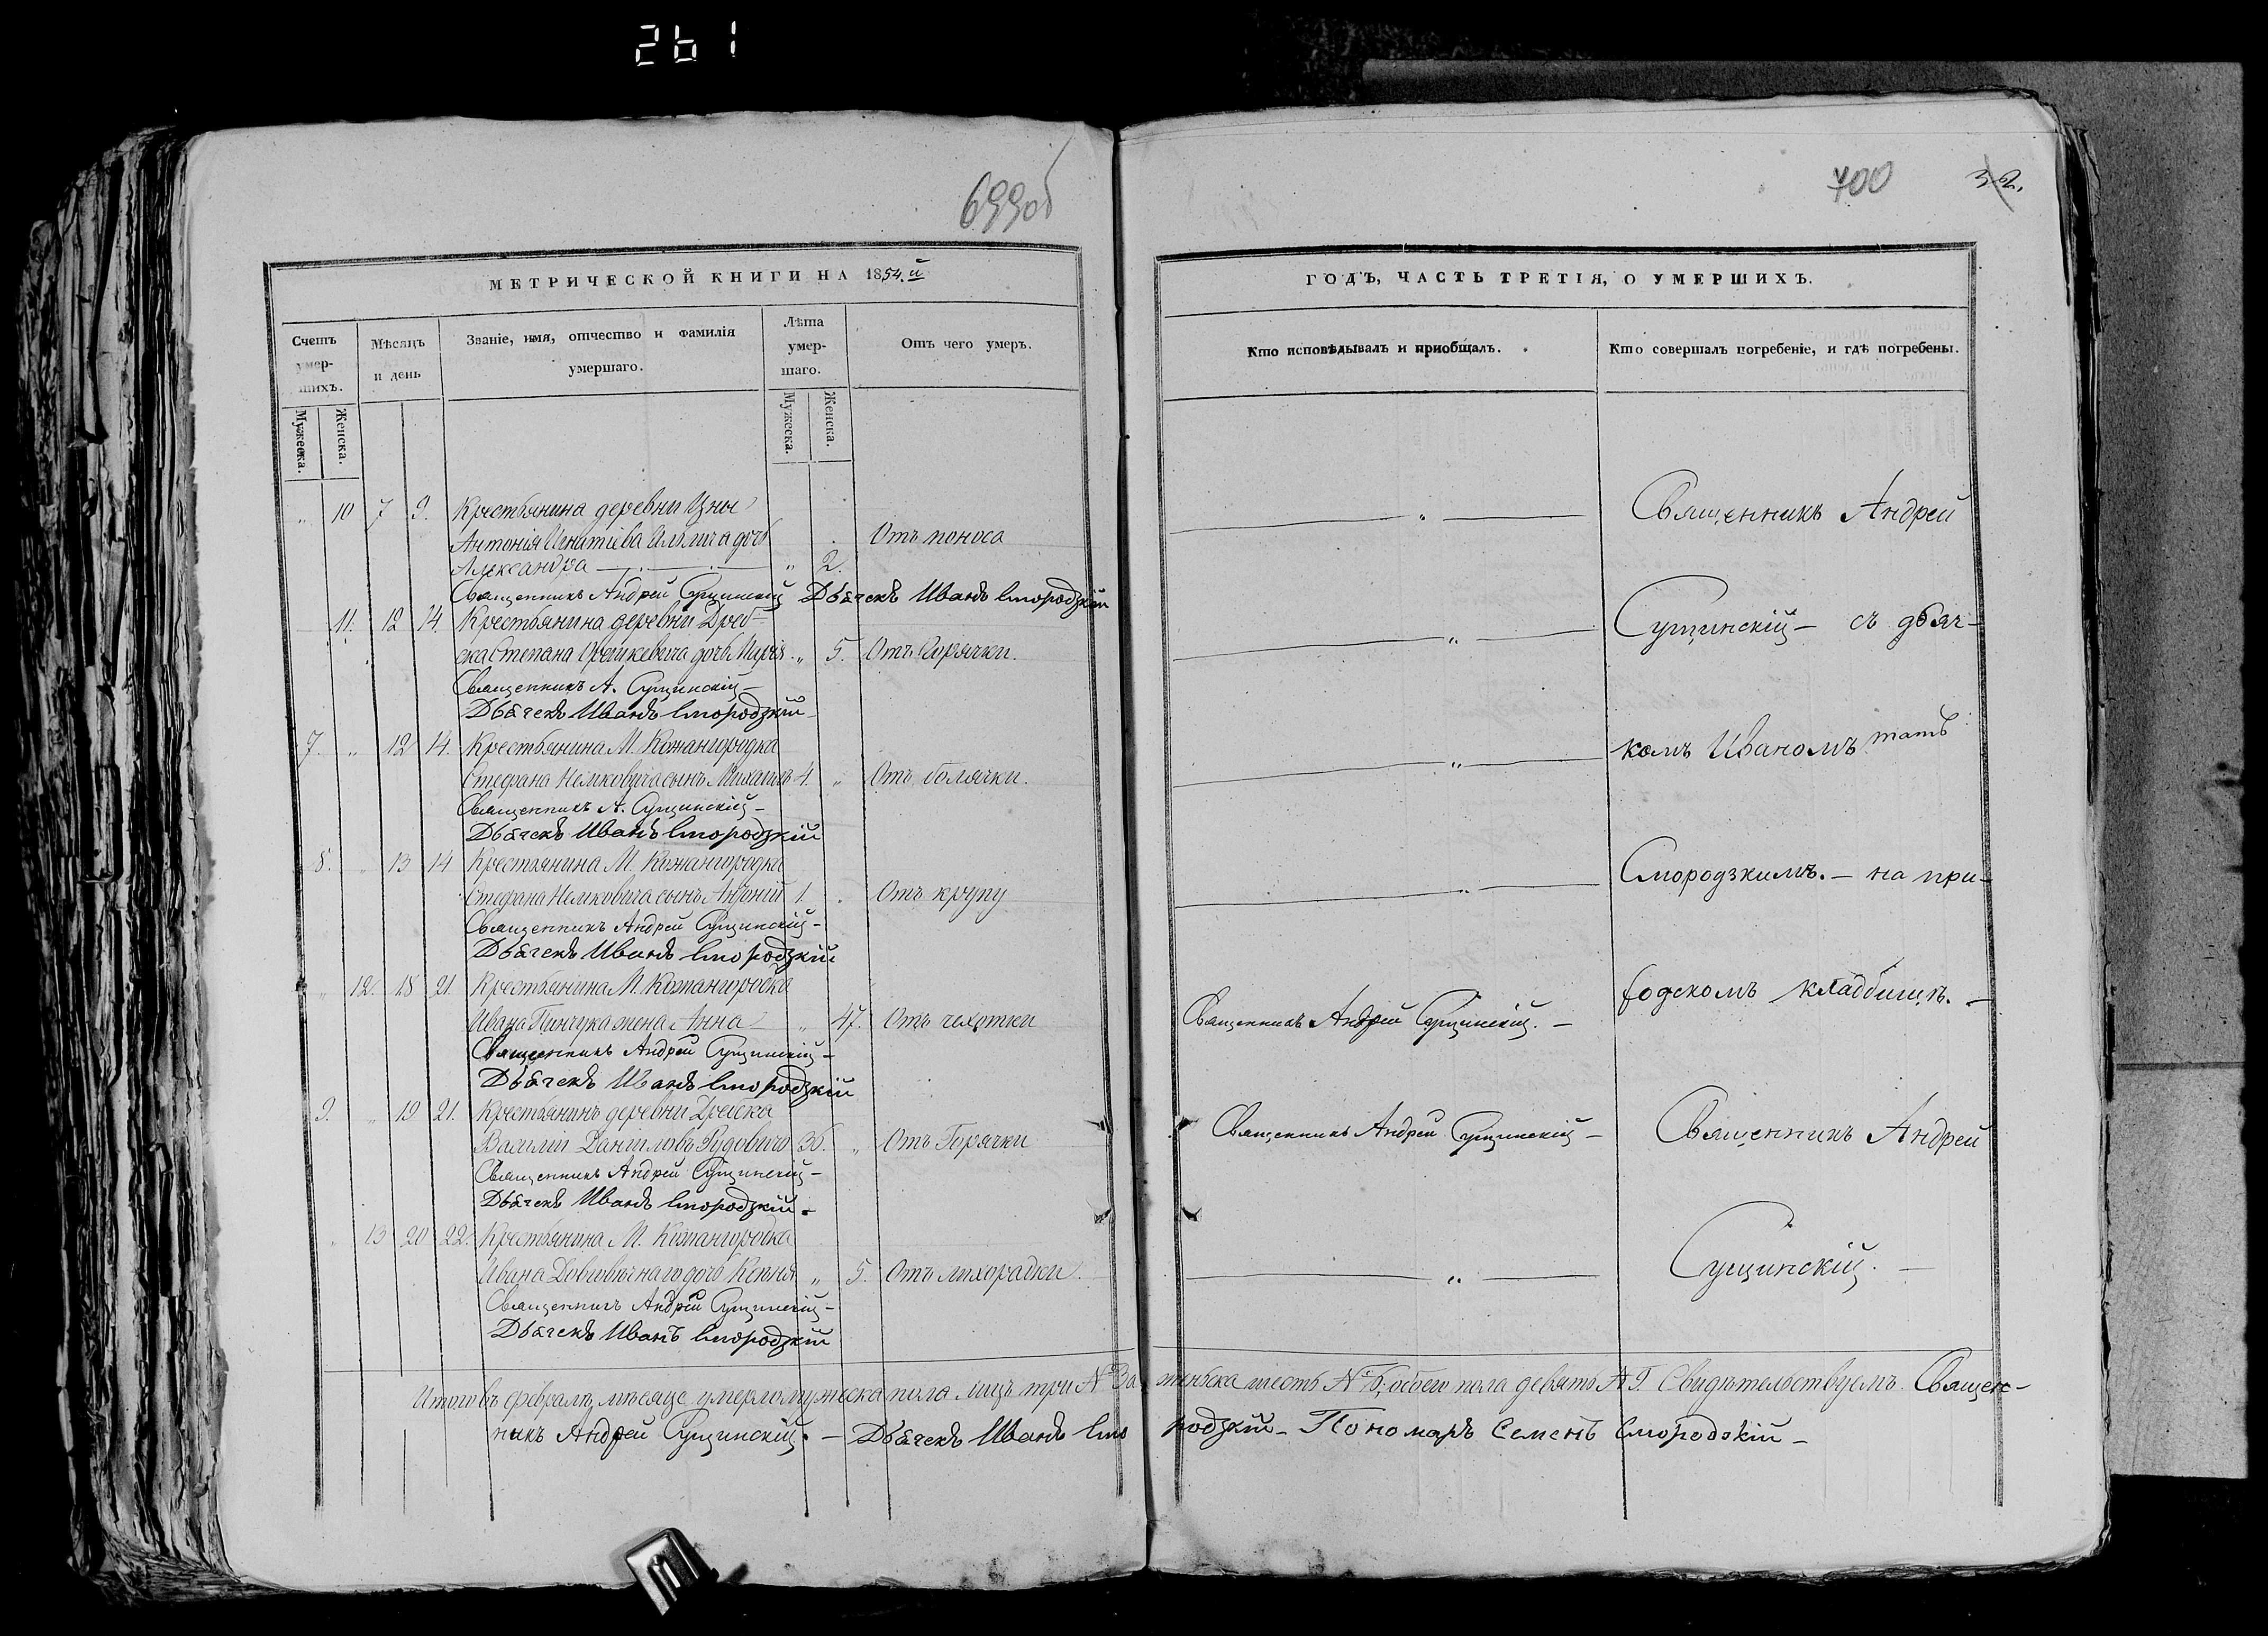 261
699об
МЕТРИЧЕСКОЙ КНИГИ НА 1854.й
Счетъ умер-шихъ.
Мѣсяцъ и день
Званіе, имя, отчество и фамилія умершаго.
Лѣта умер-шаго.
Отъ чего умеръ.
Мужеска.
Женска.
Мужеска.
Женска.
„ 10 7 9. Крестьянина деревни Цны
Антонія Игнатіева дочь Отъ поноса
Александра „ 2.
Священникъ Андрей Сущинскій Дьячекъ Иванъ Смородзкій
11. 12 14. Крестьянина деревни Дреб-
ска Степана дочь Марія „ 5. Отъ Горячки.
Священникъ А. Сущинскій –
Дьячекъ Иванъ Смородзкій
7. „ 12 14. Крестьянина М. Кожангородка
Стефана Немковича сынъ Михаилъ 4. „ Отъ болячки.
Священникъ А. Сущинскій –
Дьячекъ Иванъ Смородзкій
8. „ 13 14 Крестьянина М. Кожангородка
Стефана Немковича сынъ Андрей 1. Отъ крупу
Священникъ Андрей Сущинскій –
Дьячекъ Иванъ Смородзкій
„ 12. 18 21. Крестьянина М. Кожангородка
Ивана Пинчука жена Анна „ 47. Отъ чехотки
Священникъ Андрей Сущинскій –
Дьячекъ Иванъ Смородзкій
9. „ 19 21. Крестьянинъ деревни Дребска
Василий Даниловъ Рудовичъ 36. „ Отъ Горячки
Священникъ Андрей Сущинскій –
Дьячекъ Иванъ Смородзкій.
„ 13 20 22. Крестьянина М. Кожангородка
Ивана дочь Ксенія „ 5. Отъ лихорадки
Священникъ Андрей Сущинскій –
Дьячекъ Иванъ Смородзкій
Итого въ февралѣ мѣсяце умерло мужеска пола лицъ три №3
никъ Андрей Сущинскій. – Дьячекъ Иванъ Смо
700 32.
ГОДЪ, ЧАСТЬ ТРЕТІЯ, О УМЕРШИХЪ.
Кто исповѣдывалъ и пріобщалъ.
Кто совершалъ погребеніе, и гдѣ погребены.
Священникъ Андрей
Сущинскій – съ дьяч-
комъ Иваномъ
Смородзкимъ. – на при-
ходскомъ кладбищѣ. –
Священникъ Андрей Сущинскій. –
Священникъ Андрей Сущинскій – Священникъ Андрей
Сущинскій. –
женска шесть №6, обоего пола девять №9. Свидѣтельствуемъ. Священ-
родзкій – Пономарь Семенъ Смородскій –